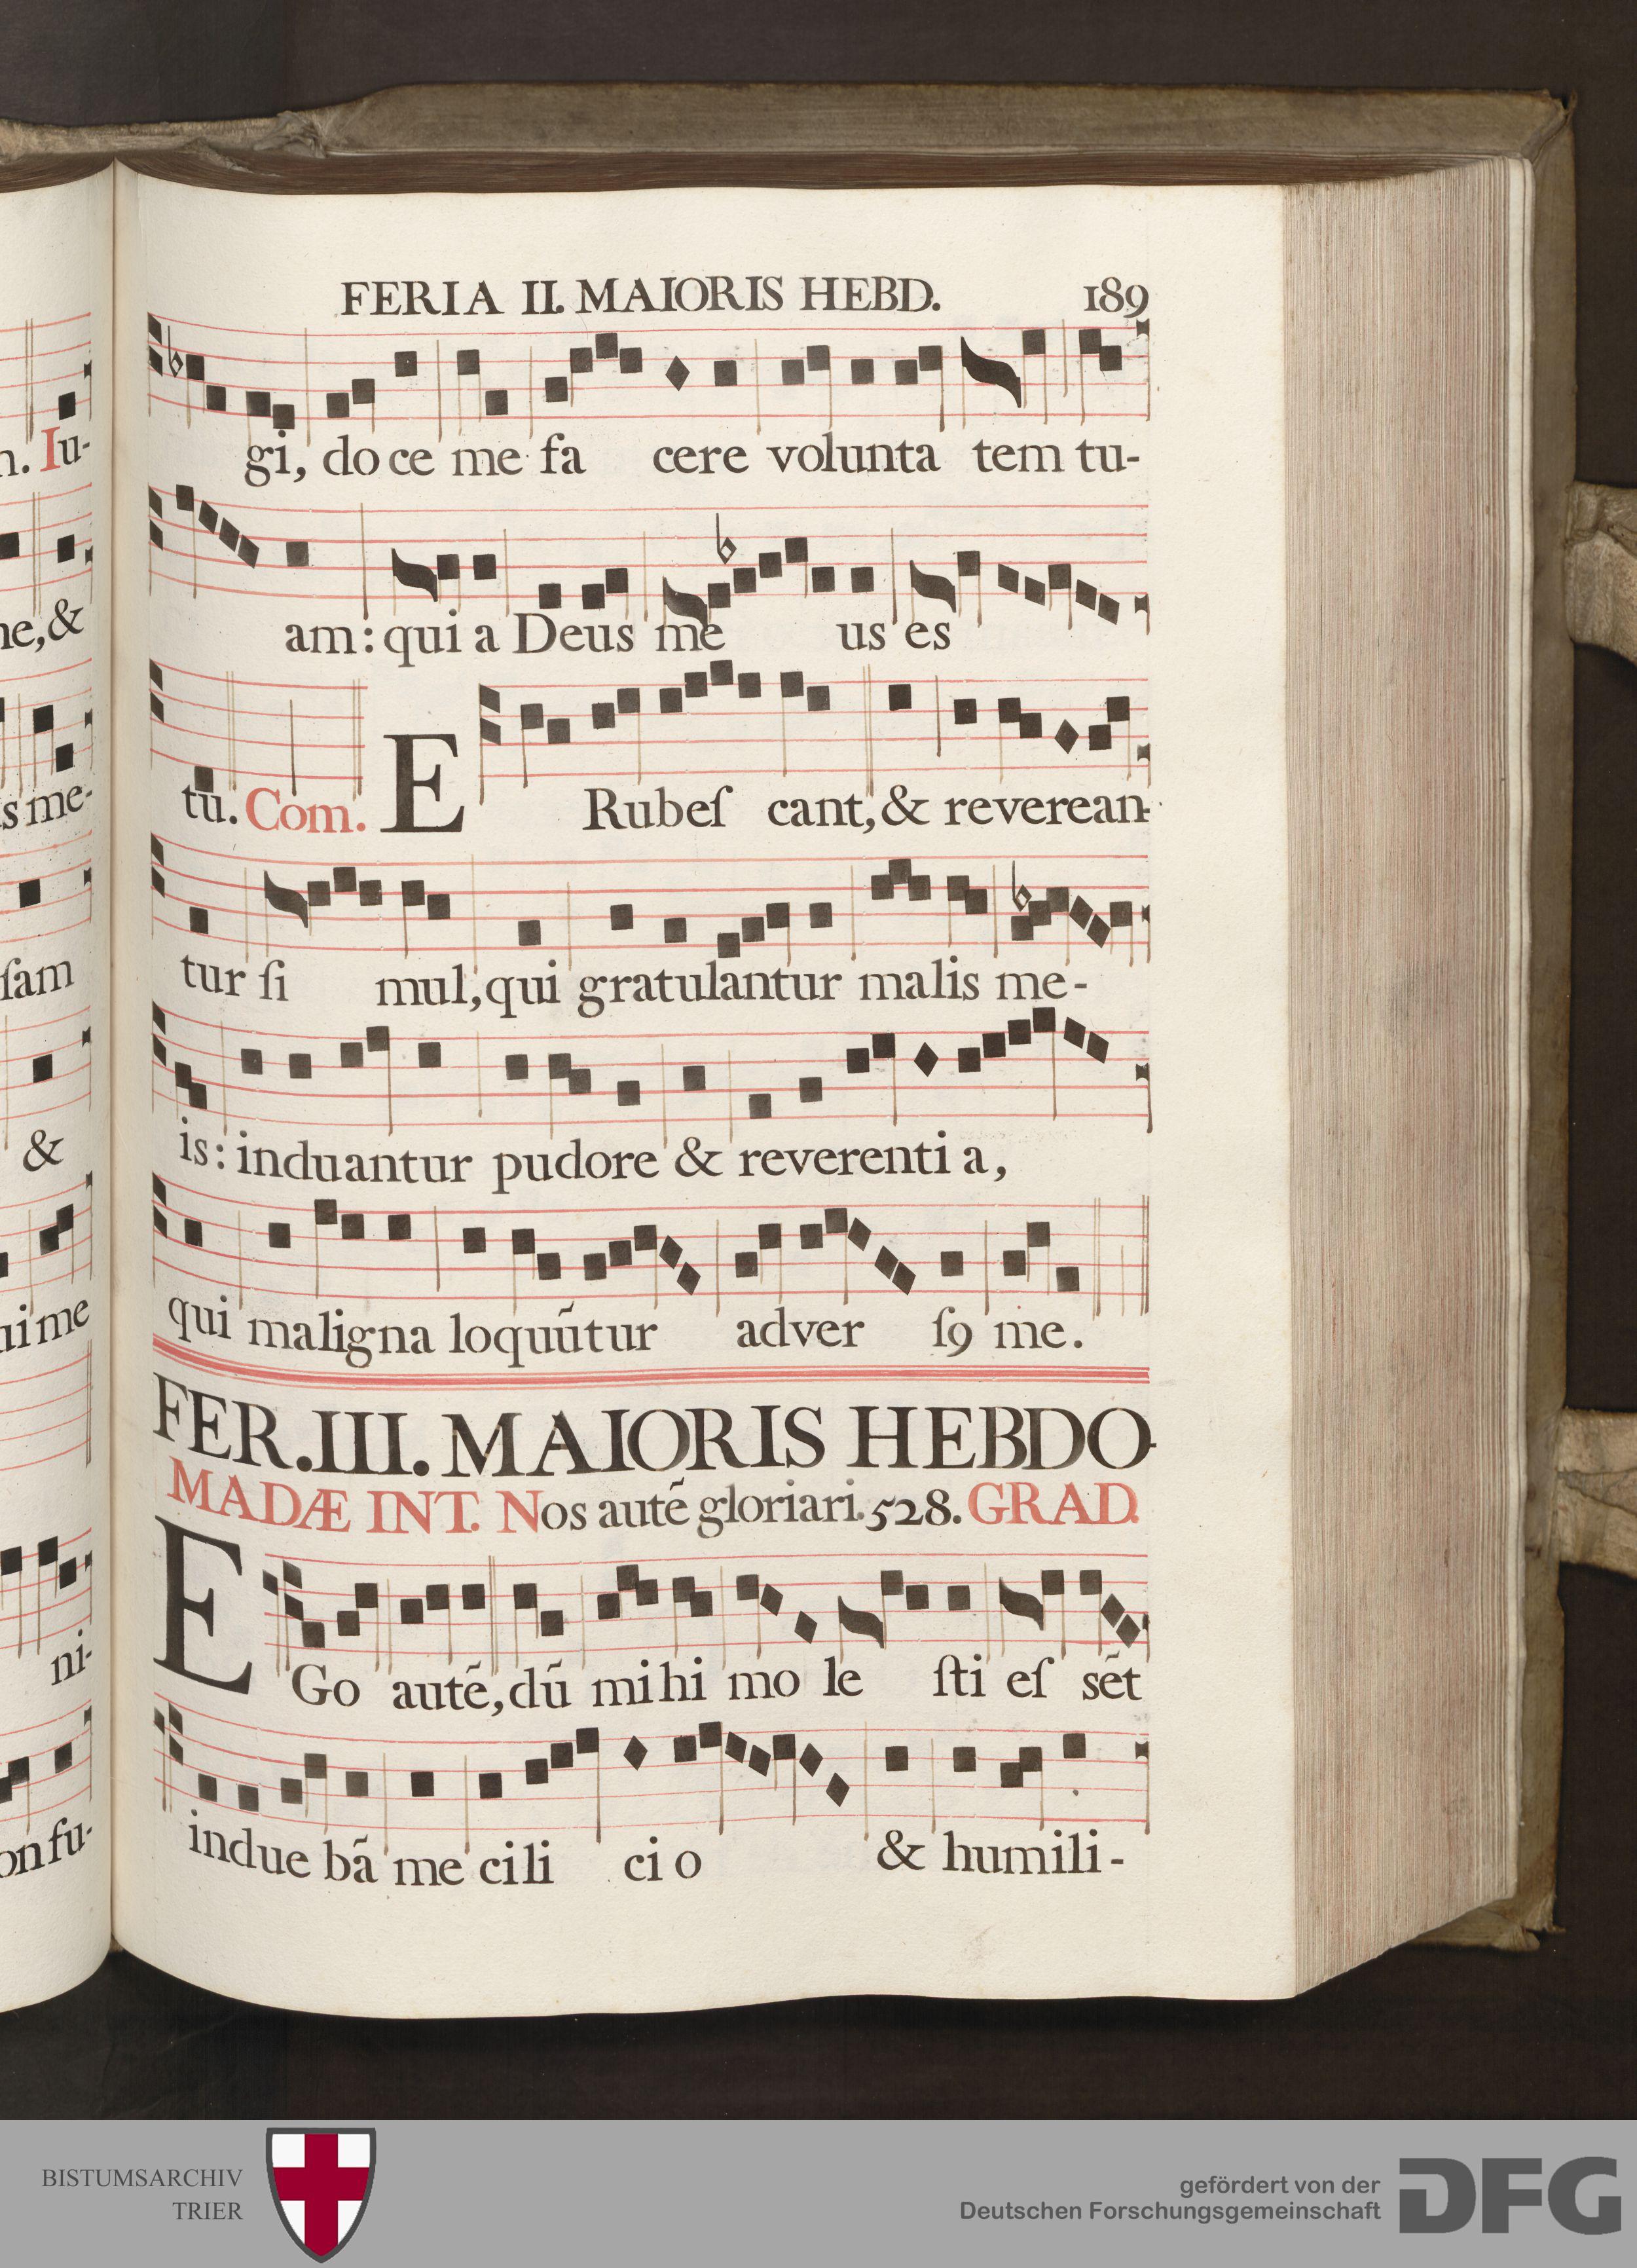 FERIA II. MAIORIS HEBD. 189
gi, do ce me fa cere volunta tem tu-
am: qui a Deus me us es
tu. Com. E Rubeſ cant, & reverean-
tur ſi mul, qui gratulantur malis me-
is: induantur pudore & reverenti a,
qui maligna loquūtur adver ſ9 me.
FER. III. MAIORIS HEBDO-
MADÆ INT. Nos autē gloriari. 528. GRAD.
E Go autē, dū mihi mo le ſti eſ sēt
indue bā me cili ci o & humili-
n. Iu-
ne, &
s me-
ſam
&
ui me
ni-
onfu-
BISTUMSARCHIV
TRIER
gefördert von der
Deutschen Forschungsgemeinschaft
DFG